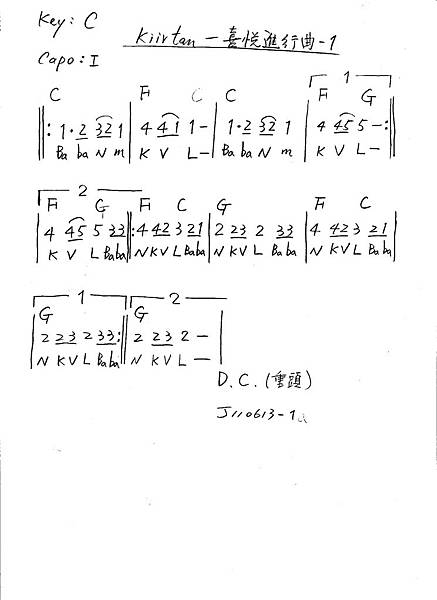 Key: C
Kiirtan – 喜悦進行曲-1
Capo: I
1
C F C C F G
‖: 1·2 321 | 4 41 1- | 1·2 32 1 | 4 45 5 -:‖
Ba ba N m K V L – Ba ba N m K V L –
2
F G F C G F C
4 45 5 33 ‖: 4 42 3 21 | 2 23 2 33 | 4 42 3 21 |
K V L Baba N K V L Baba N K V L Baba N K V L Baba
1 2
G G
2 23 2 33 :‖ 2 23 2 – |
N K V L Baba N K V L –
D.C. (重頭)
J110613-1